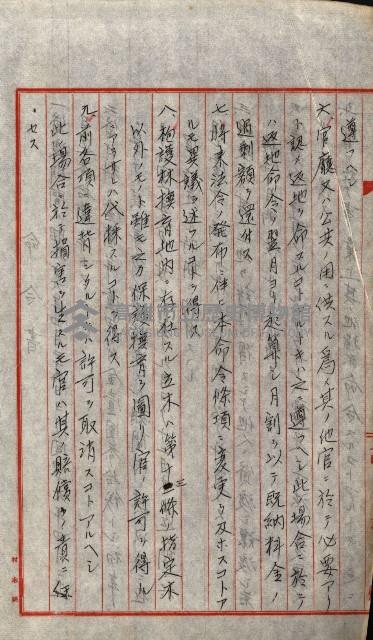 遵フヘシ
六、官廳又ハ公共ノ用ニ供スル爲メ其ノ他官ニ於テ必要アリ
ト認メ返地ヲ命スルコトアルトキハ之ニ遵フヘシ此ノ場合ニ於テ
ハ返地命令ノ翌月ヨリ起算シ月割ヲ以テ既納料金ノ
過剰額ヲ還付ス
七、將来法令ノ発布ニ伴ヒ本命令條項ニ変更ヲ及ホスコトア
ルモ異議ヲ述フルヲ得ス
八、栢護林撫育地内ニ存在スル立木ハ第十三條ノ指定木
以外ト雖モ之カ保護撫育ヲ圖リ官ノ許可ヲ得ル
ニアラサレハ伐採スルコトヲ得ス
九、前各項ニ違背シタルトキハ許可ヲ取消スコトアルヘシ
此ノ場合ニ於テ損害ヲ生スルモ官ハ其ノ賠償ノ責ニ任
セス